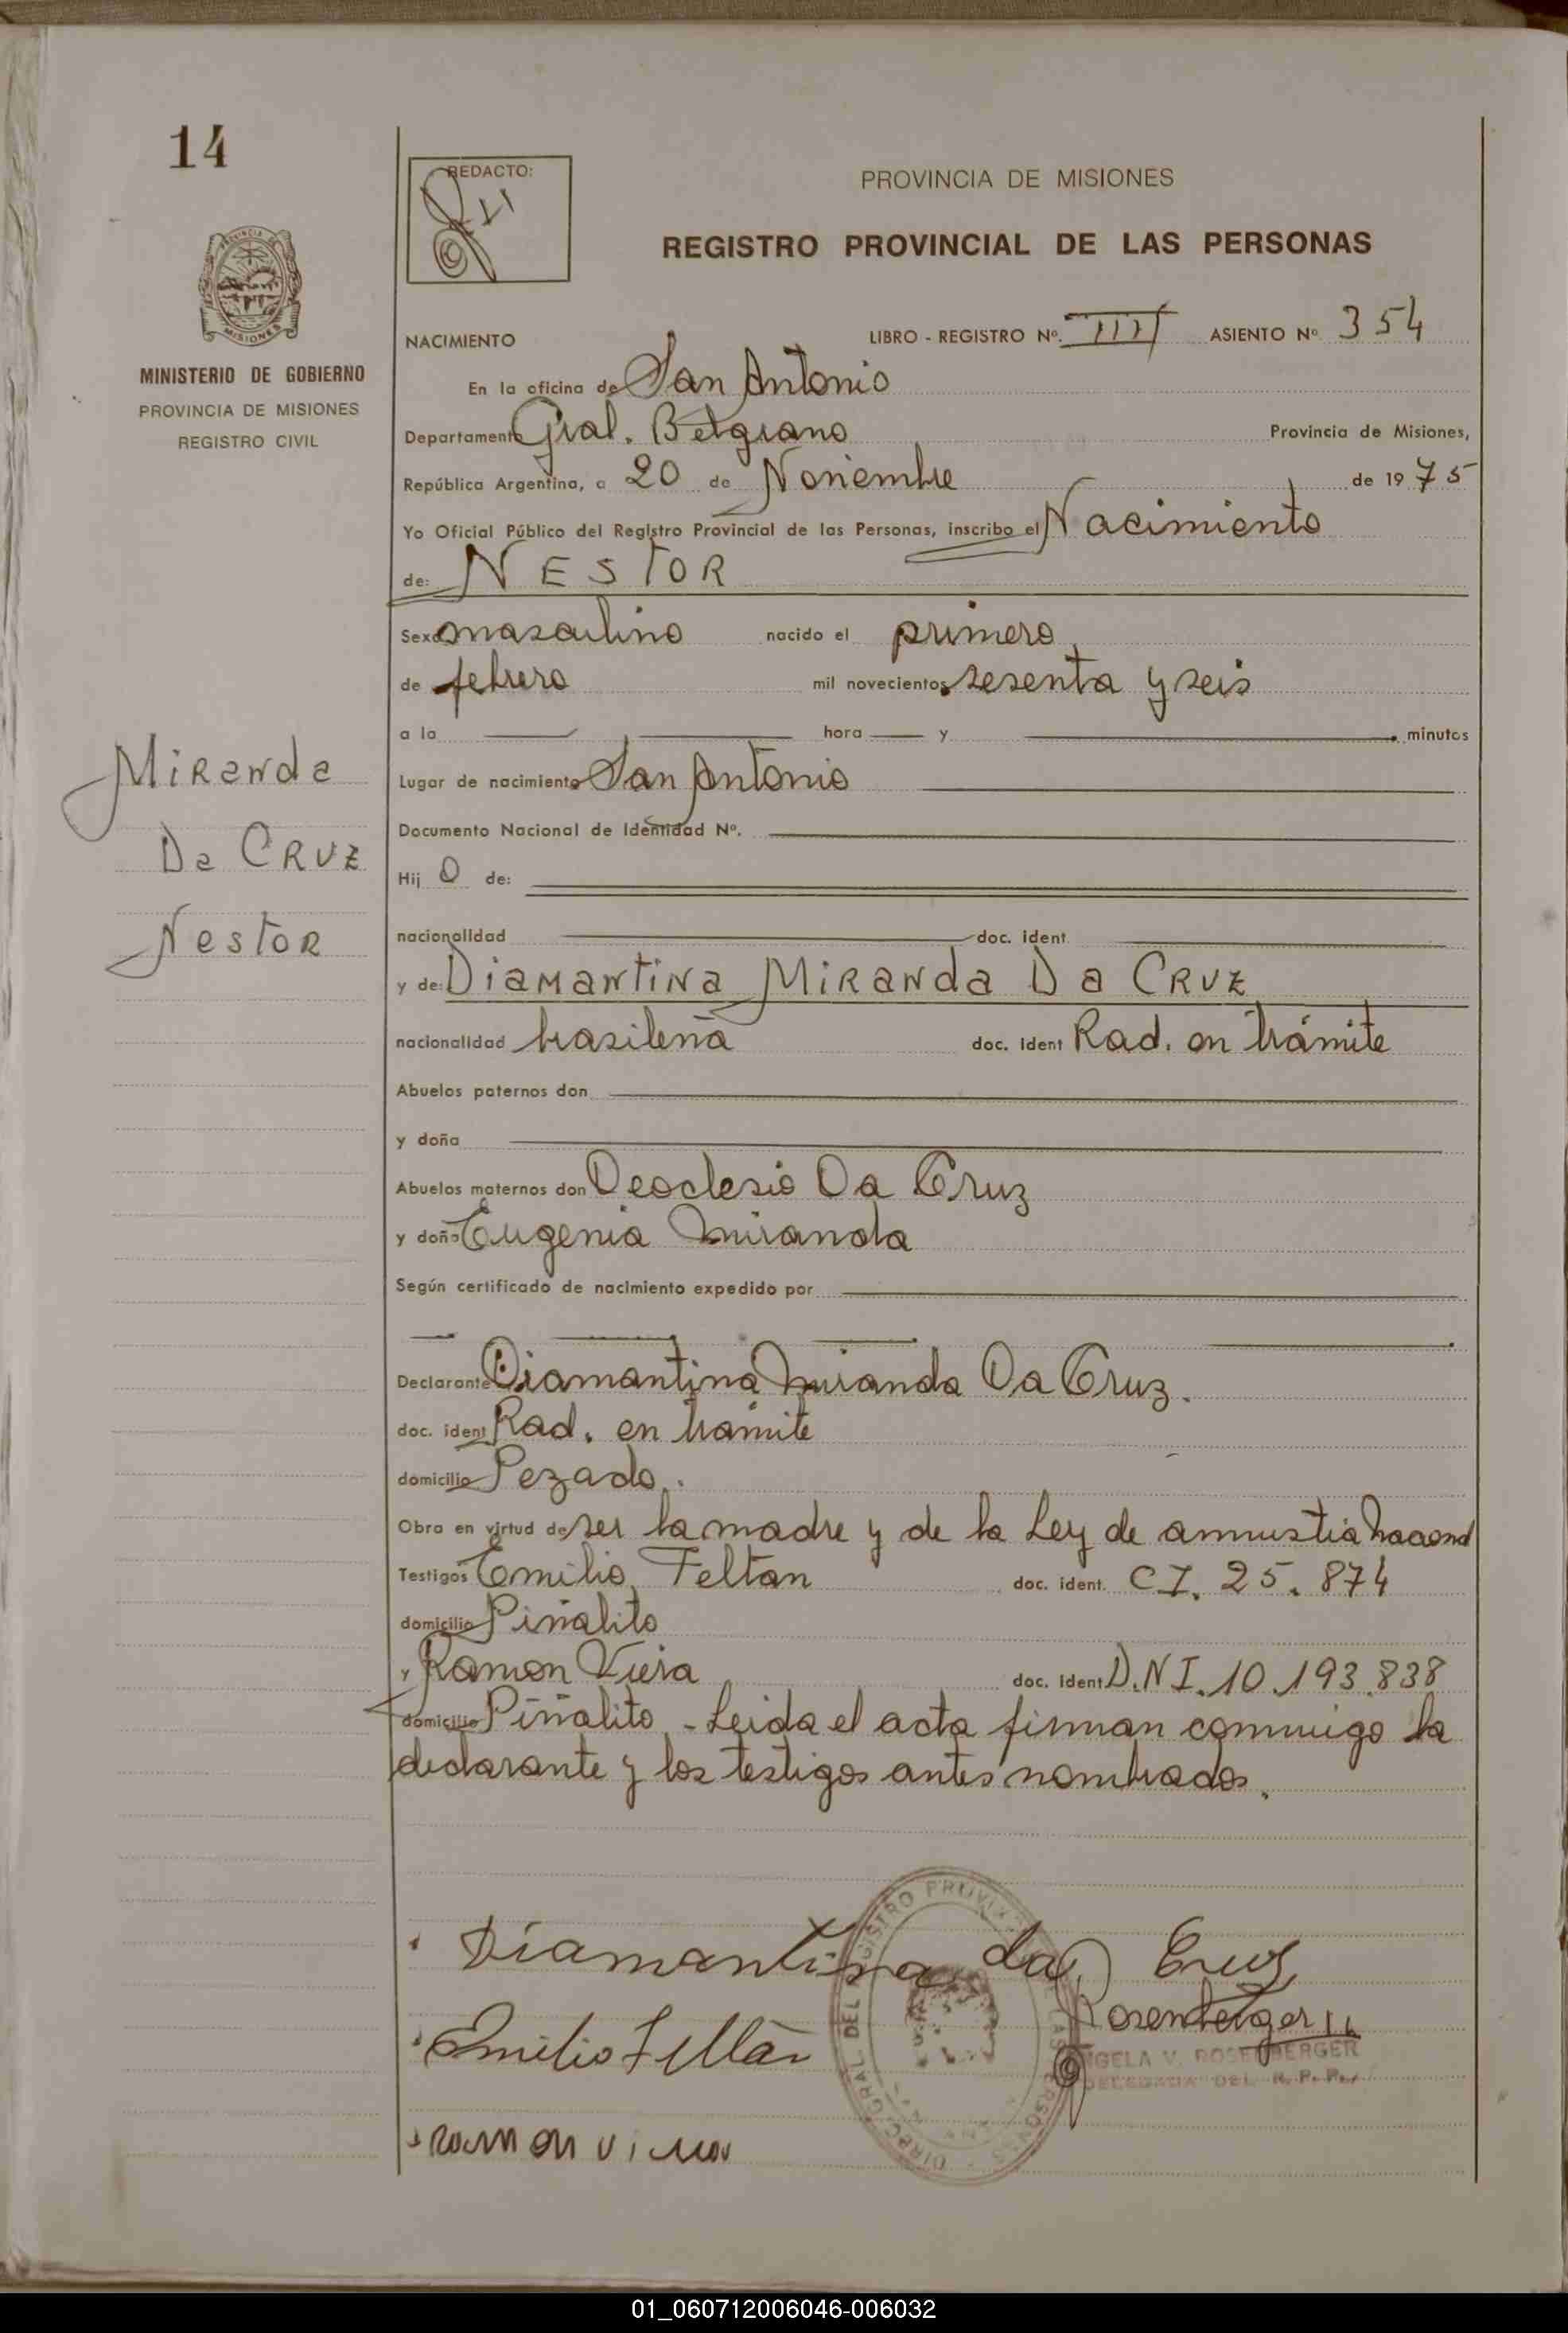 14
PROVINCIA DE
MISIONES
MINISTERIO DE GOBIERNO
PROVINCIA DE MISIONES
REGISTRO CIVIL
Miranda
Da CRUZ
Nestor
REDACTO:
PROVINCIA DE MISIONES
REGISTRO PROVINCIAL DE LAS PERSONAS
NACIMIENTO LIBRO - REGISTRO Nº. III ASIENTO Nº 354
En la oficina de San Antonio
Departamento Gral. Belgrano Provincia de Misiones,
República Argentina, a 20 de Noviembre de 1975
Yo Oficial Público del Registro Provincial de las Personas, inscribo el Nacimiento
de: NESTOR
Sexo masculino nacido el primero
de febrero mil novecientos sesenta y seis
a la hora y minutos
Lugar de nacimiento San Antonio
Documento Nacional de Identidad Nº.
Hij o de:
nacionalidad doc. ident
y de: DiAMANTiNA MiRANda Da CRUZ
nacionalidad brasileña doc. ident Rad. en trámite
Abuelos paternos don
y doña
Abuelos maternos don Deoclesio Da Cruz
y doña Eugenia Miranda
Según certificado de nacimiento expedido por
Declarante Diamantina Miranda Da Cruz.
doc. ident Rad. en tramite
domicilio Pezado.
Obra en virtud de ser la madre y de la Ley de amnustia
Testigos Emilio Feltan doc. ident. CI. 25.874
domicilio Piñalito
y Ramon Viera doc. ident D.NI. 10.193.838
domicilio Piñalito - Leida el acta firman conmigo la
declarante y los testigos antes nombrados.
Diamantina da Cruz
Rosenberger
Emilio Feltán
ANGELA V. ROSENBERGER
DELEGADA DEL R. P. P.
DIREC. GRAL. DEL REGISTRO PROVINCIAL DE LAS PERSONAS
ramon viera
01_060712006046-006032